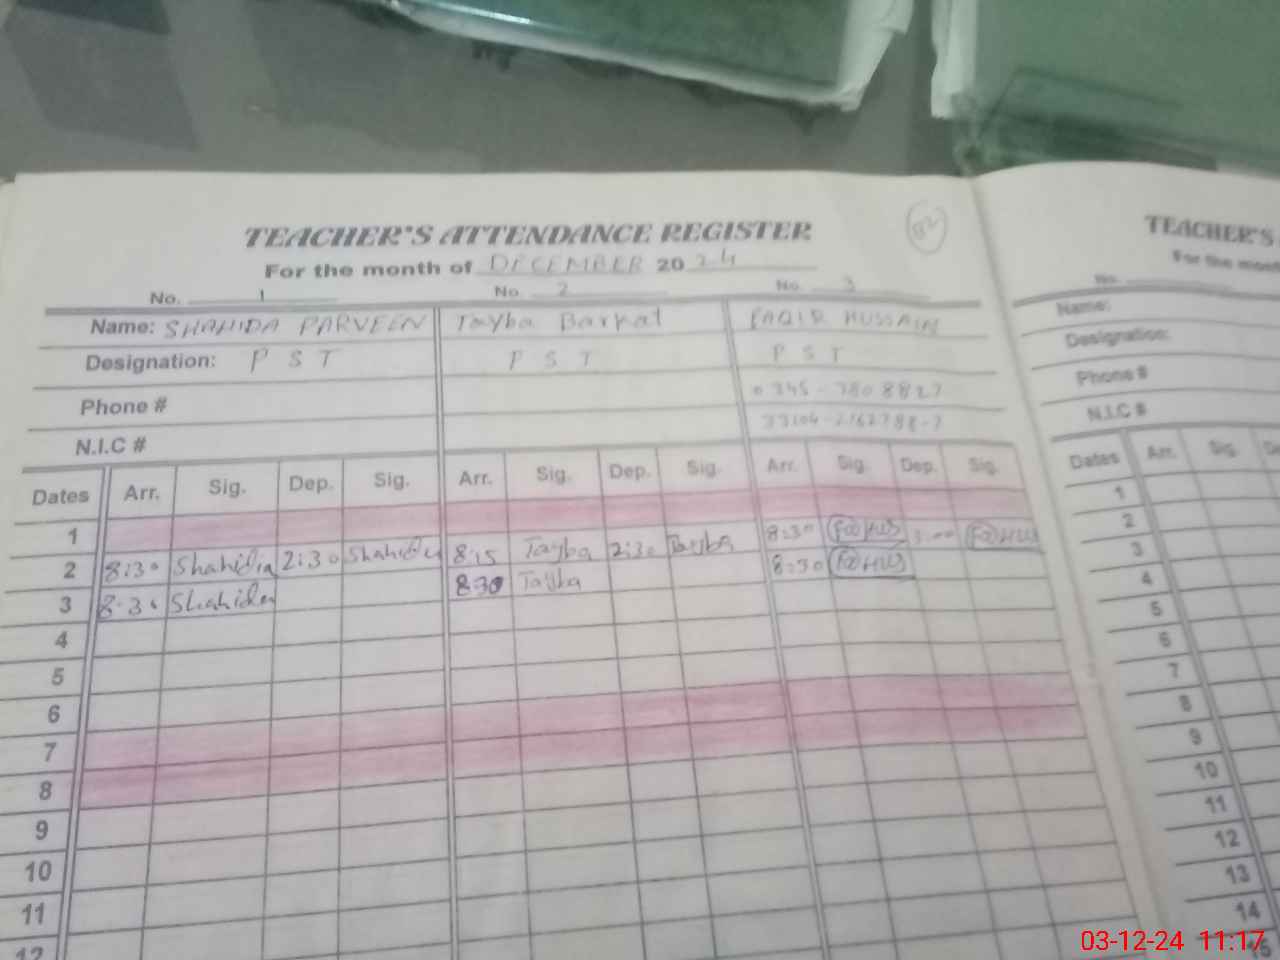 82
TEACHER'S ATTENDANCE REGISTER
For the month of DECEMBER 2024
No. 1 No. 2 No. 3
Name: SHAHIDA PARVEEN Tayba Barkat FAQIR HUSSAIN
Designation: P S T P S T P S T
Phone #
N.I.C #
Dates Arr. Sig. Dep. Sig. Arr. Sig. Dep. Sig. Arr. Sig. Dep. Sig.
1
2 8:30 Shahida 2:30 Shahida 8:15 Tayba 2:30 Tayba 8:30 3:00
3 8:30 Shahida 8:30 Tayba 8:30
4
5
6
7
8
9
10
11
12
TEACHER'S
For the month
No.
Name:
Designation:
Phone #
N.I.C #
Dates Arr. Sig.
1
2
3
4
5
6
7
8
9
10
11
12
13
14
15
03-12-24 11:17